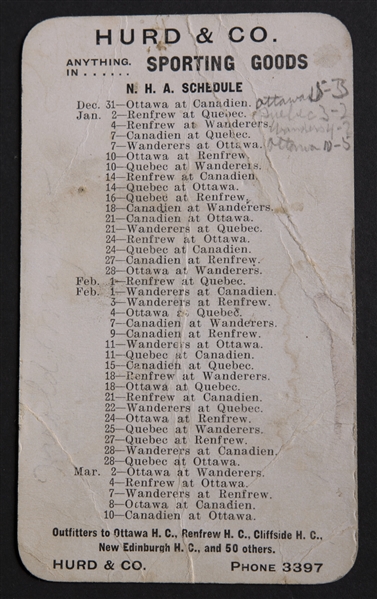 HURD & CO.
ANYTHING IN ...... SPORTING GOODS
N. H. A. SCHEDULE
Dec. 31—Ottawa at Canadien. Ottawa
Jan. 2—Renfrew at Quebec. Quebec 3-2
4—Renfrew at Wanderers.
7—Canadien at Quebec.
7—Wanderers at Ottawa. Ottawa 10-5
10—Ottawa at Renfrew.
10—Quebec at Wanderers.
14—Renfrew at Canadien.
14—Quebec at Ottawa.
16—Quebec at Renfrew.
18—Canadien at Wanderers.
21—Canadien at Ottawa.
21—Wanderers at Quebec.
24—Renfrew at Ottawa.
24—Quebec at Canadien.
27—Canadien at Renfrew.
28—Ottawa at Wanderers.
Feb. 1—Renfrew at Quebec.
Feb. 1—Wanderers at Canadien.
3—Wanderers at Renfrew.
4—Ottawa at Quebec.
7—Canadien at Wanderers.
9—Canadien at Renfrew.
11—Wanderers at Ottawa.
11—Quebec at Canadien.
15—Canadien at Quebec.
18—Renfrew at Wanderers.
18—Ottawa at Quebec.
21—Renfrew at Canadien.
22—Wanderers at Quebec.
24—Ottawa at Renfrew.
25—Quebec at Wanderers.
27—Quebec at Renfrew.
28—Wanderers at Canadien.
28—Quebec at Ottawa.
Mar. 2—Ottawa at Wanderers.
4—Renfrew at Ottawa.
7—Wanderers at Renfrew.
8—Ottawa at Canadien.
10—Canadien at Ottawa.
Outfitters to Ottawa H. C., Renfrew H. C., Cliffside H. C.,
New Edinburgh H. C., and 50 others.
HURD & CO. PHONE 3397